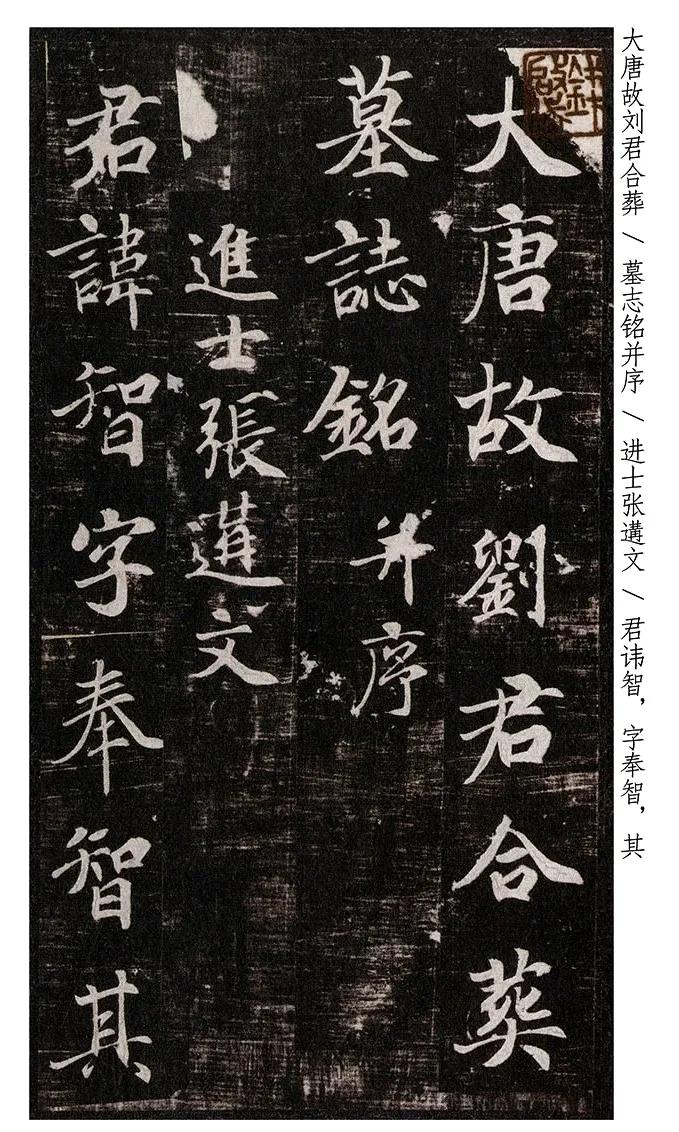 大唐故刘君合葬 \ 墓志铭并序 \ 进士张遘文 \ 君讳智，字奉智，其
大唐故劉君合葬
墓誌銘并序
進士張遘文
君諱智字奉智其